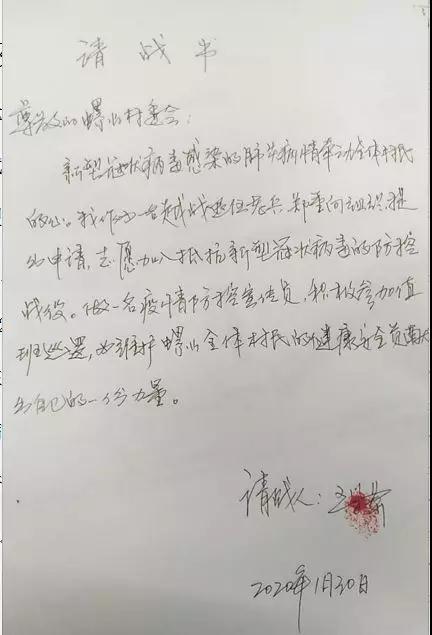 请战书
尊敬的螺山村委会：
新型冠状病毒感染的肺炎病情牵动全体村民
的心。我作为一名越战退伍老兵，郑重向组织提
出申请，志愿加入抵抗新型冠状病毒的防控
战役。做一名疫情防控宣传员，积极参加值
班巡逻，为维护螺山全体村民的健康安全贡献
出自己的一份力量。
请战人：王
2020年1月30日